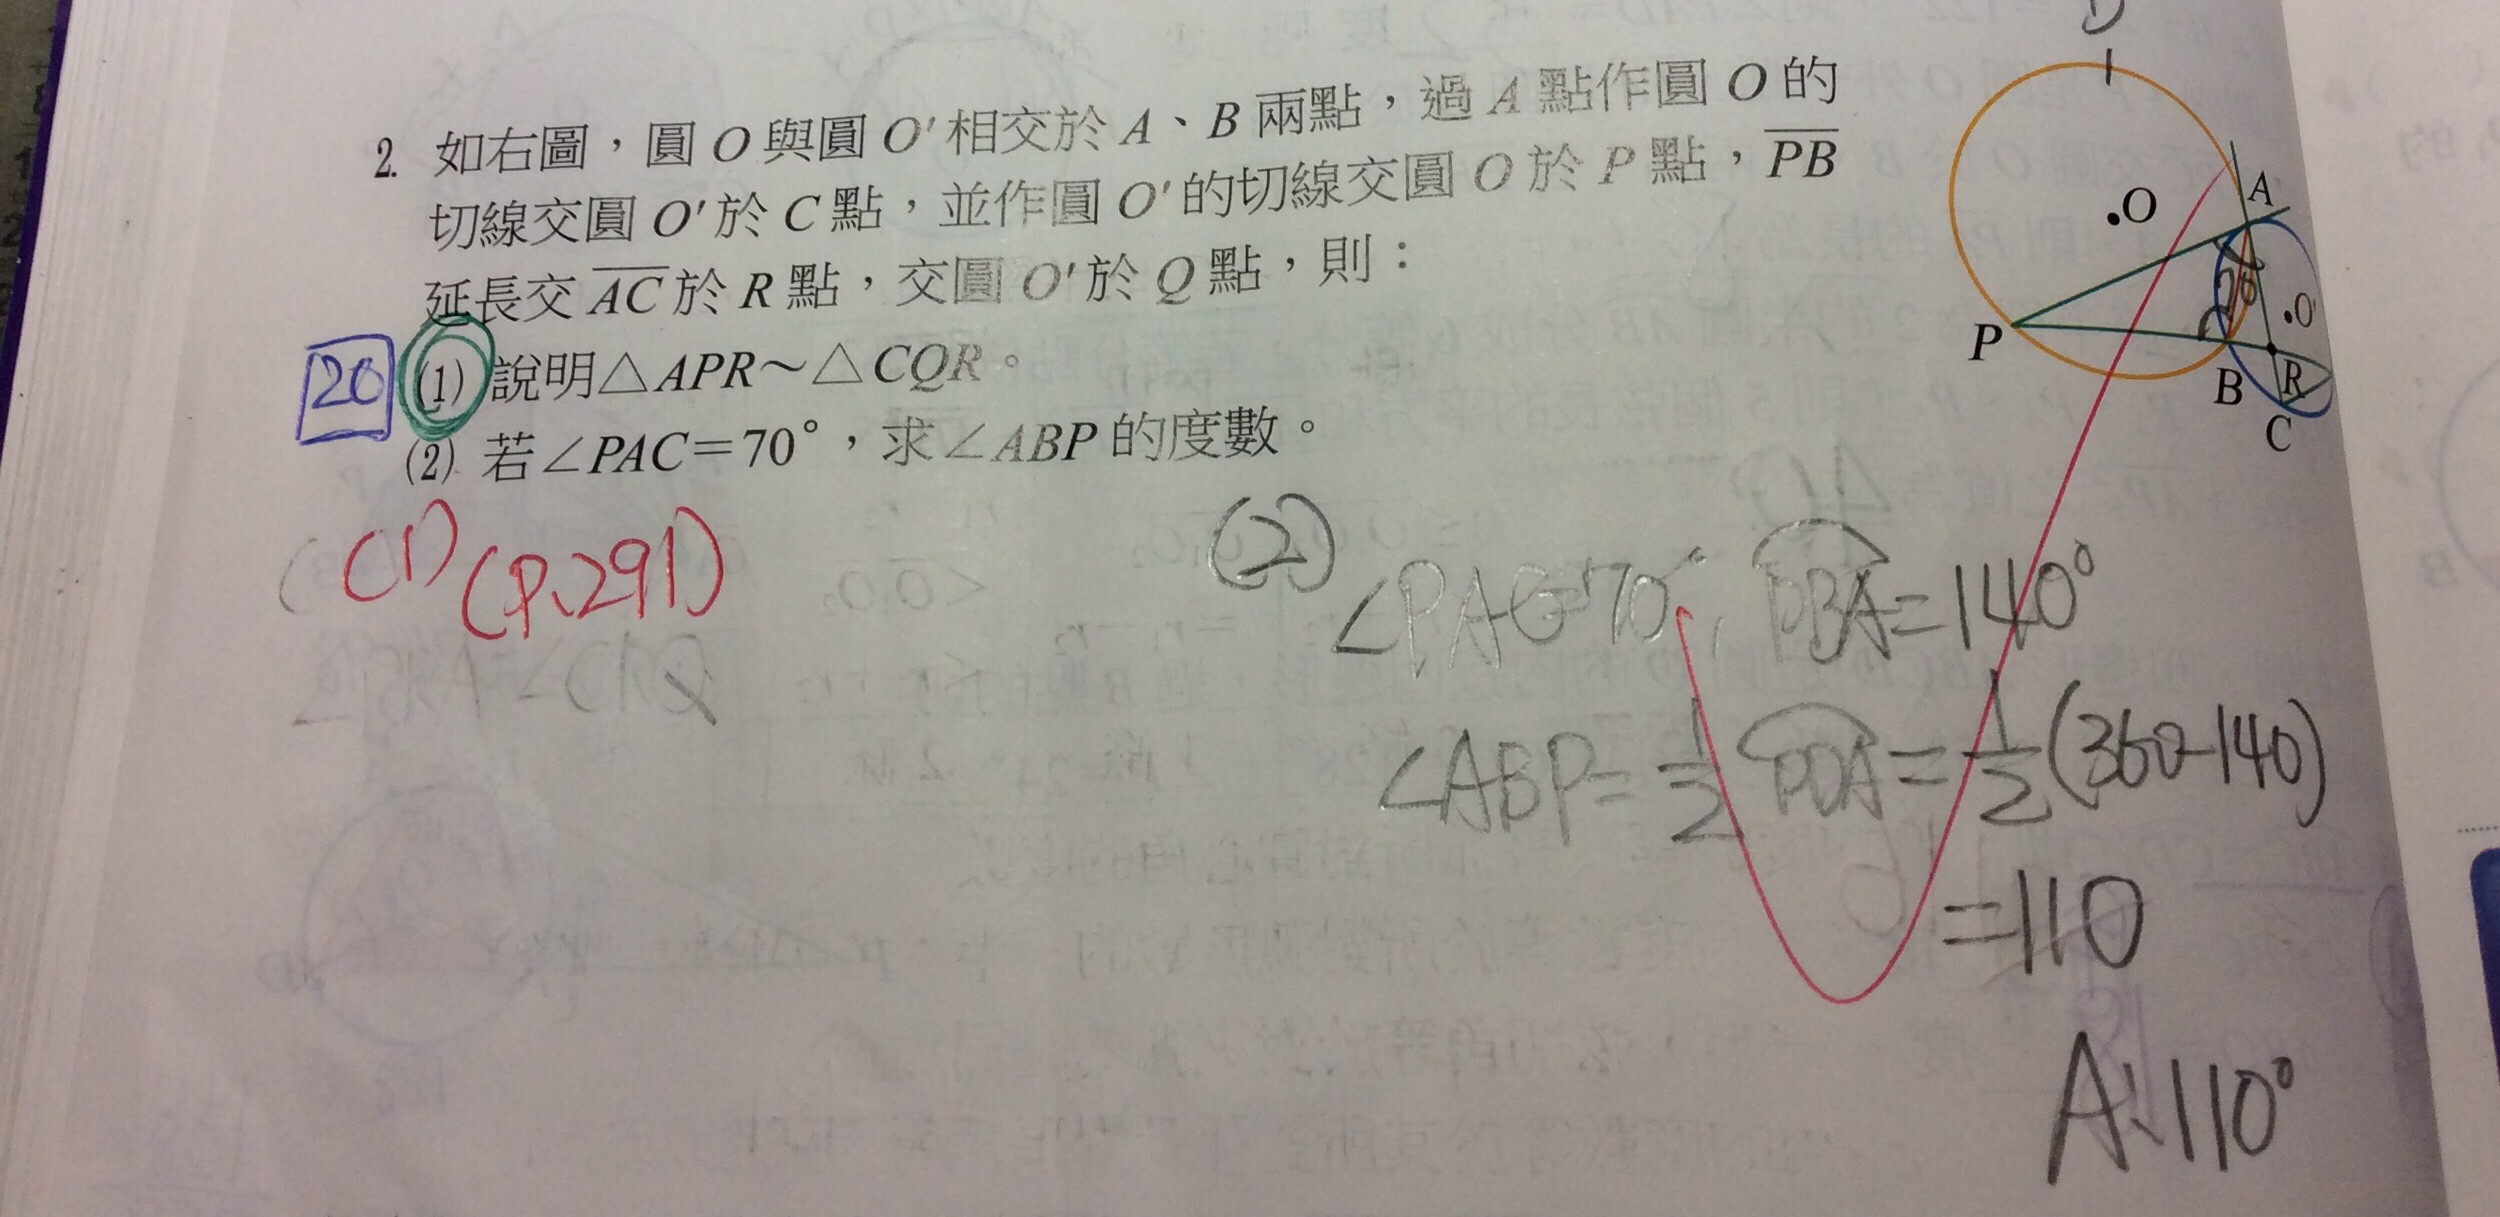 2. 如右圖，圓 O 與圓 O' 相交於 A、B 兩點，過 A 點作圓 O 的
切線交圓 O' 於 C 點，並作圓 O' 的切線交圓 O 於 P 點，PB
延長交 AC 於 R 點，交圓 O' 於 Q 點，則：
20 (1) 說明△APR～△CQR。
(2) 若∠PAC＝70°，求∠ABP 的度數。
D
A
O
26
O'
P
B
R
C
(1) (P.291)
(2)
∠PAC=70°, PBA=140°
∠ABP=1/2 PDA=1/2(360-140)
=110
A:110°